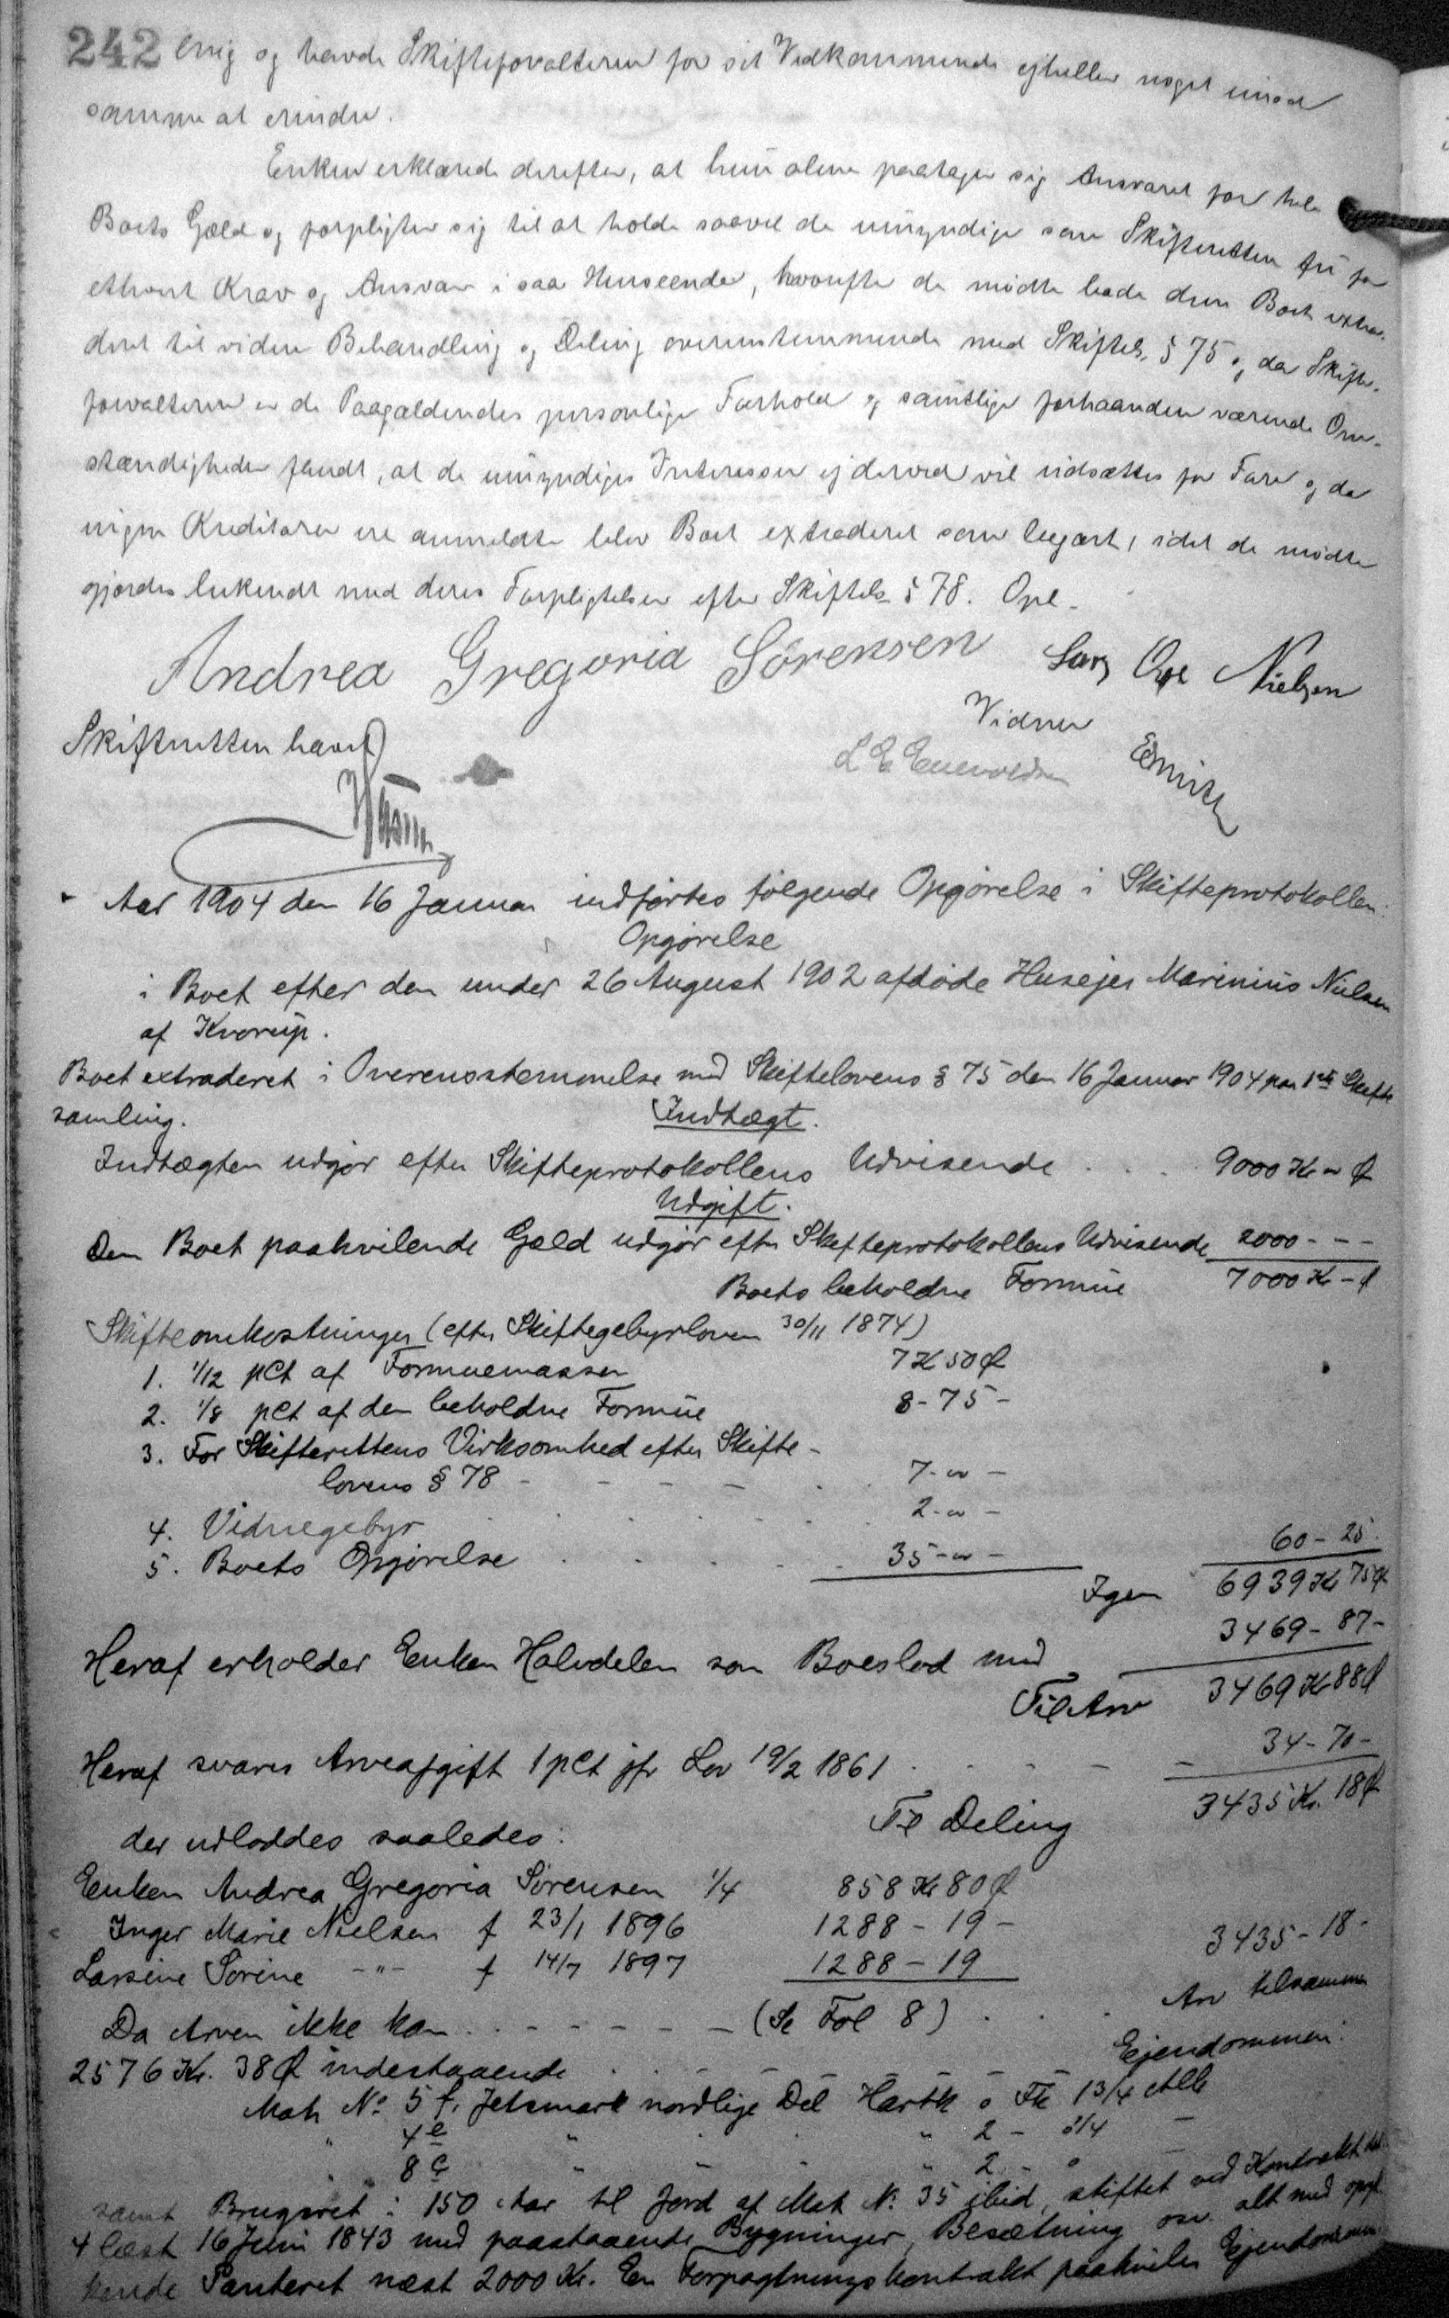 242 enig og havde Skifteforvalteren for sit Vedkommende ejheller noget imod
samme at erindre.
Enken erklærede derefter, at hun alene paatager sig Ansvaret for hele
Boets Gæld og forpligter sig til at holde saavel de umyndige som Skifteretten fri for
ethvert Krav og Ansvar i saa Henseende, hvorefter de mødte bade dem Boet extra-
deret til videre Behandling og Deling overensstemmende med Skiftels. § 75 og da Skifte-
forvalteren er de Paagældendes personlige Forhold og samtlige forhaanden værende Om-
stændigheder fandt, at de umyndiges Interesser ej derved vil udsættes for Fare og da
ingen Kreditorer ere anmeldte blev Boet extraderet som begært, idet de mødte
gjordes bekendt med deres Forpligtelser efter Skiftels § 78. Opl.
Andrea Gregoria Sørensen Lars Chr Nielsen
Vidner
Skifteretten hævet
L E Enevoldsen
Aar 1904 den 16 Januar indførtes følgende Opgørelse i Skifteprotokollen:
Opgørelse
i Boet efter den under 26 August 1902 afdøde Husejer Marinius Nielsen
af Kvorup.
Boet extraderet i Overensstemmelse med Skiftelovens § 75 den 16 Januar 1904 paa 1ste Skifte
samling.
Indtægt.
Indtægten udgør efter Skifteprotokollens Udvisende . . . 9000 Kr " Ø
Udgift.
Den Boet paahvilende Gæld udgør efter Skifteprotokollens Udvisende 2000 - - -
Boets beholdne Formue 7000 Kr - Ø
Skifteomkostninger (efter Skiftegebyrloven 30/11 1874)
1. 1/12 pCt af Formuemassen 7 Kr 50 Ø
2. 1/8 pCt af den beholdne Formue 8 - 75 -
3. For Skifterettens Virksomhed efter Skifte-
lovens § 78 - - - - 7 - " -
4. Vidnegebyr . . . . 2 - " -
5. Boets Opgørelse . . . . 35 - " - 60 - 25 -
Igen 6939 Kr 75 Ø
Heraf erholder Enken Halvdelen som Boeslod med 3469 - 87 -
Til Arv 3469 Kr 88 Ø
Heraf svares Arveafgift 1 pCt jfr Lov 19/2 1861 . . . 34 - 70 -
Til Deling 3435 Kr. 18 Ø
der udloddes saaledes:
Enken Andrea Gregoria Sørensen 1/4 858 Kr 80 Ø
Inger Marie Nielsen f 23/1 1896 1288 - 19 -
Larsine Sørine - " - f 14/7 1897 1288 - 19 3435 - 18 -
Da Arven ikke kan . . - - - - - (Se Fol 8) . . . Arv tilsammen
2576 Kr. 38 Ø indestaaende . . . Ejendommen:
Matr No 5 f, Jetsmark nordlige Del Hartk 0 Fk 1 3/4 Alb
" 4 e " " " 2 - 3/4 -
" 8 c " " " 2 - "
samt Brugsret i 150 Aar til Jord af Mat No. 35 ibid, stiftet ved Kontrakt dat.
& læst 16 Juni 1843 med paastaaende Bygninger, Besætning osv. alt med opryk-
kende Panteret næst 2000 Kr. En Forpagtningskontrakt paahviler Ejendommen